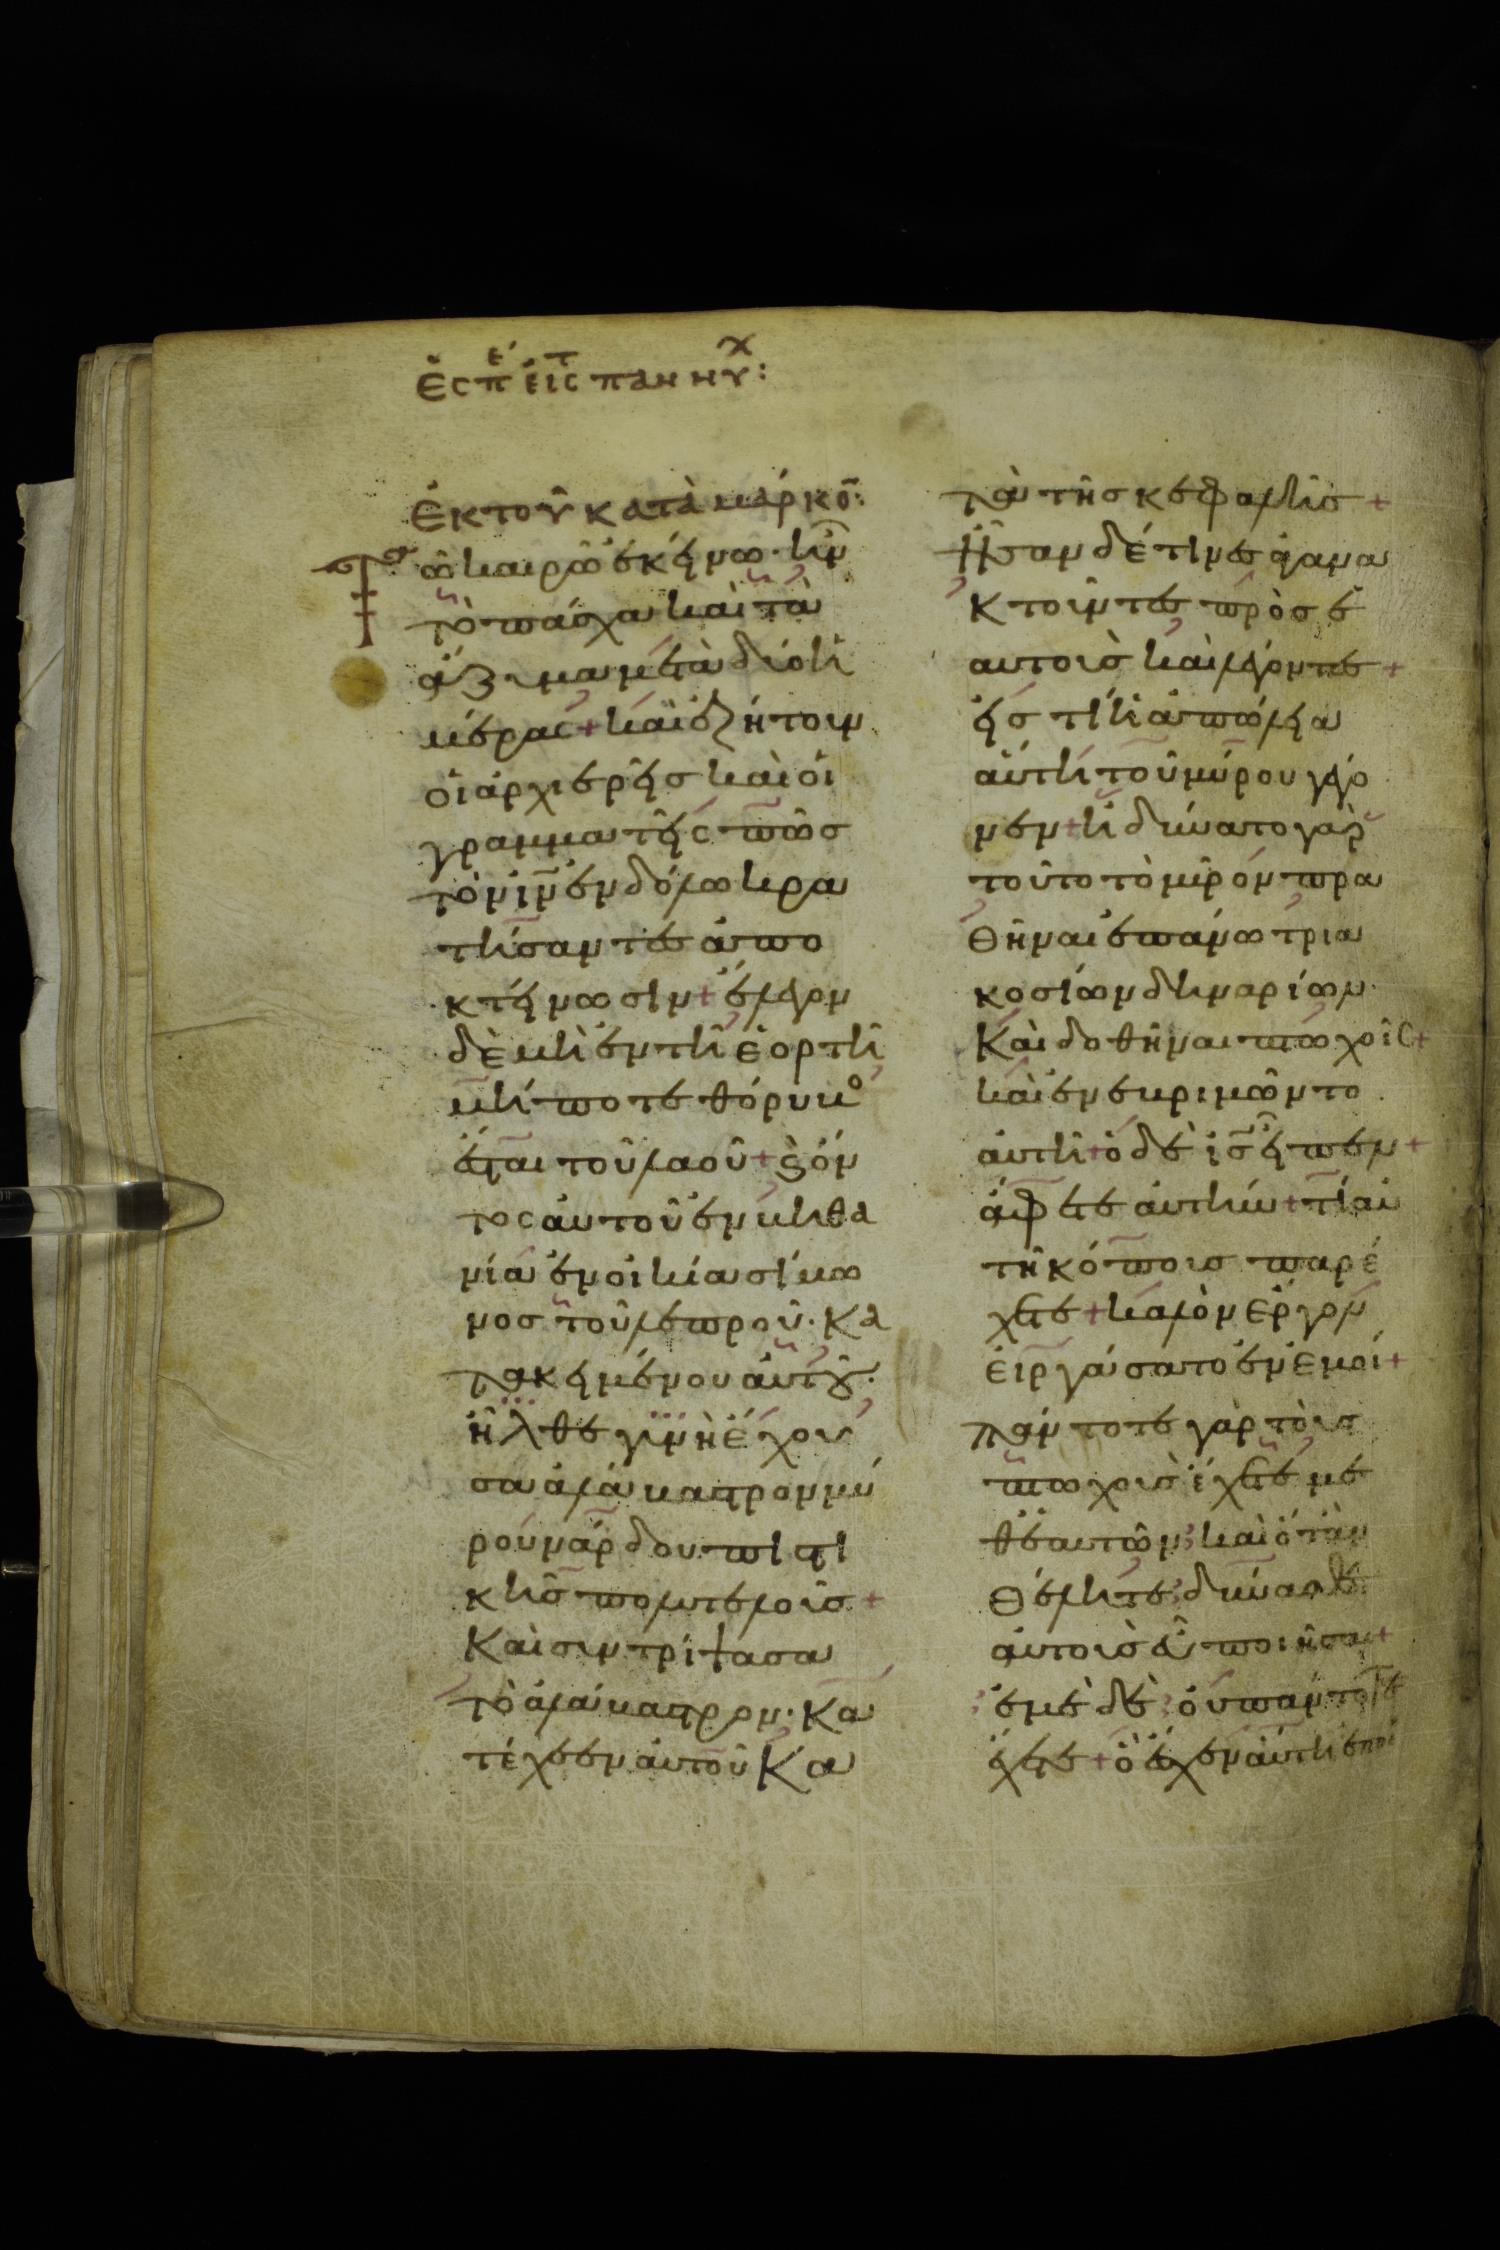 Ἑσπ ε εἰς τ παννυχ:
Ἐκ τοῦ κατὰ μάρκο͂:
Τῶ καιρῶ ἐκείνω· ἦν
τὸ πάσχα καὶ τὰ
ἄζυμα μετὰ δύο ἡ
μέρας + καὶ ἐζήτουν
οἱ ἀρχιερεῖς καὶ οἱ
γραμματεῖς πῶς
τὸν ιν ἐν δόλω κρα
τήσαντες ἀπο
κτείνωσιν + ἔλεγον
δὲ μὴ ἐν τῆ ἑορτῆ
μήποτε θόρυβο
ἔσται τοῦ λαοῦ + ϗ ὄν
τος αὐτοῦ ἐν βηθα
νία ἐν οἰκία σίμω
νος τοῦ λεπροῦ· κα
τακειμένου αὐτοῦ·
ἦλθε γυνὴ ἔχου
σα ἀλάβαστρον μύ
ρου νάρδου πιστι
κῆς πολυτελοῖς +
Καὶ συντρίψασα
τὸ ἀλάβαστρον· Κα
τέχεεν αὐτοῦ Κα
τὰ τῆς κεφαλῆς +
Ἦσαν δέ τινες ἀγανα
Κτοῦντες πρὸς ἑ
αυτοὶς καὶ λέγοντες +
εἰς τί ἡ ἀπώλεια
αὕτη τοῦ μύρου γέγο
νεν + ἠδύνατο γὰρ
τοῦτο τὸ μῦρόν πρα
θῆναι ἐπάνω τρια
κοσίων δηναρίων·
Καὶ δοθῆναι πτωχοῖς +
καὶ ἐνεβριμῶντο
αὐτῆ + ὁ δὲ ις εἶπεν +
ἄφετε ἀυτήν + τί αὐ
τῆ κόποις παρέ
χετε + καλὸν ἔργον
εἰργάσατο ἐν ἐμοί +
πάντοτε γὰρ τοὺς
πτωχοὶς ἔχετε με
θ' ἑαυτῶν καὶ ὅταν
Θέλητε δύνασθε
ἀυτοὶς εὖ ποιῆσαι +
ἐμὲ δὲ ὀυ πάντοτε
ἔχετε + ὃ ἔσχεν ἀύτη ἐποί